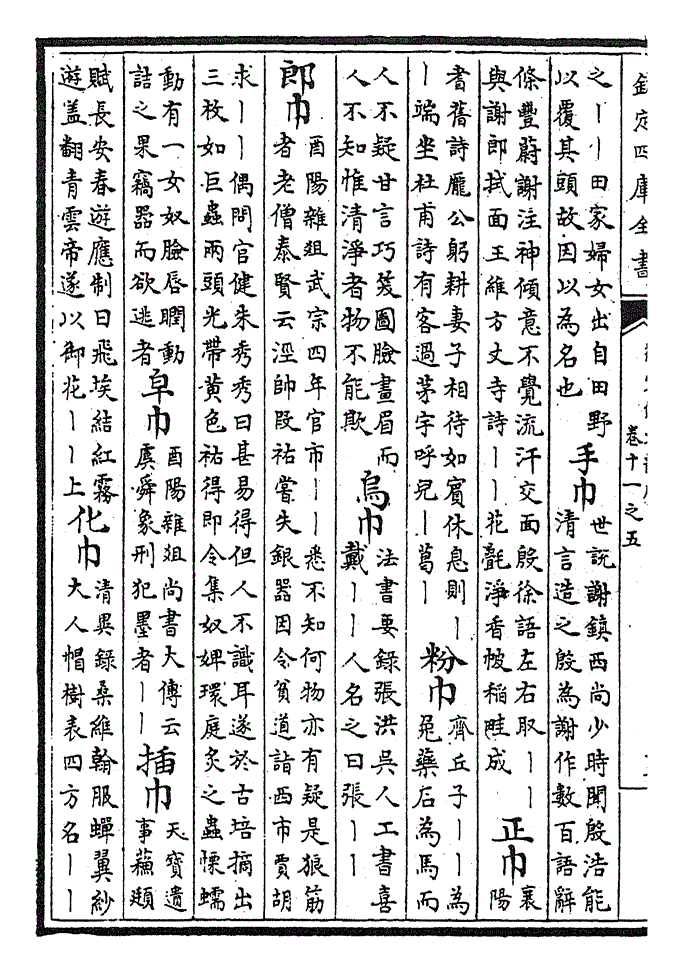 欽定四庫全書
卷十一之五
之丨丨田家婦女出自田野
以覆其頭故因以為名也
手巾
世説謝鎮西尚少時聞殷浩能
清言造之殷為謝作數百語辭
條豐蔚謝注神傾意不覺流汗交面殷徐語左右取丨丨
與謝郎拭面王維方丈寺詩丨丨花氎淨香帔稻畦成
正巾
襄
陽
耆舊詩龐公躬耕妻子相待如賓休息則丨
丨端坐杜甫詩有客過茅宇呼兒丨葛丨
粉巾
齊丘子丨丨為
兎藥石為馬而
人不疑甘言巧笑圖臉畫眉而
人不知惟清淨者物不能欺
烏巾
法書要錄張洪吳人工書喜
戴丨丨人名之曰張丨丨
郎巾
酉陽雜俎武宗四年官市丨丨悉不知何物亦有疑是狼筋
者老僧泰賢云涇帥段祐嘗失銀器因令貧道詣西市賈胡
求丨丨偶問官健朱秀秀曰甚易得但人不識耳遂於古培摘出
三枚如巨蟲兩頭光帶黄色祐得即令集奴婢環庭炙之蟲慄蠕
動有一女奴臉唇瞤動
詰之果竊器而欲逃者
皁巾
酉陽雜俎尚書大傳云
虞舜象刑犯墨者丨丨
插巾
天寶遺
事蘇頲
賦長安春遊應制曰飛埃結紅霧
遊盖翻青雲帝遂以御花丨丨上
化巾
清異錄桑維翰服蟬翼紗
大人帽樹表四方名丨丨